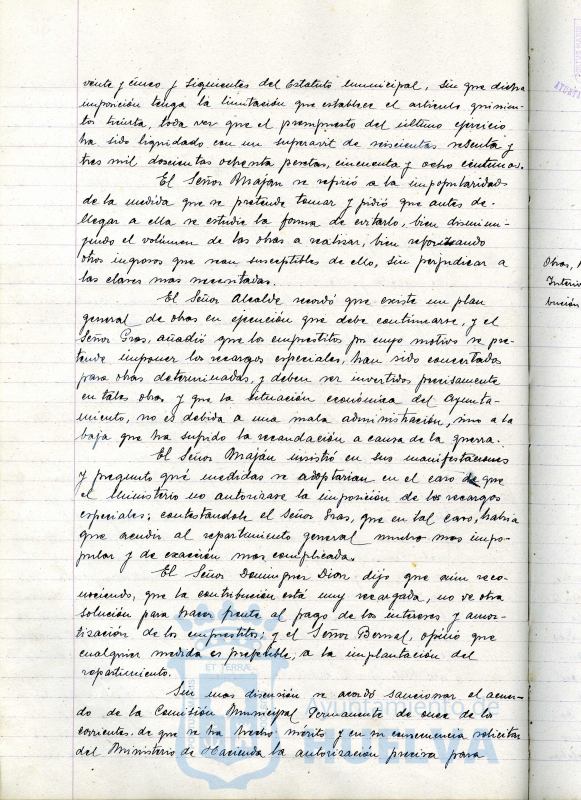 veinte y cinco y siguientes del Estatuto municipal, sin que dicha
imposición tenga la limitación que establece el artículo quinien-
tos treinta, toda vez que el presupuesto del último ejercicio
ha sido liquidado con un superavit de seiscientas sesenta y
tres mil doscientas ochenta pesetas, cincuenta y ocho centimos.
El Señor Maján se refirió a la impopularidad
de la medida que se pretende tomar y pidió que antes de
llegar a ella se estudie la forma de evitarlo, bien disminu-
yendo el volúmen de las obras a realizar, bien reforzando
otros ingresos que sean susceptibles de ello, sin perjudicar a
las clases mas necesitadas.
El Señor Alcalde recordó que existe un plan
general de obras en ejecución que debe continuarse, y el
Señor Gras, añadió que los empréstitos por cuyo motivo se pre-
tende imponer los recargos especiales, han sido concertados
para obras determinadas, y deben ser invertidos precisamente
en tales obras y que la situación económica del Ayunta-
miento, no es debida a una mala administración, sino a la
baja que ha sufrido la recaudación a causa de la guerra.
El Señor Maján insistió en sus manifestaciones
y preguntó qué medidas se adoptarían en el caso de que
el Ministerio no autorizase la imposición de los recargos
especiales; contestandole el Señor Gras, que en tal caso, habría
que acudir al repartimiento general mucho mas impo-
pular y de exacción mas complicada.
El Señor Dominguez Dior dijo que aun reco-
nociendo, que la contribución está muy recargada, no ve otra
solución para hacer frente al pago de los intereses y amor-
tización de los empréstitos; y el Señor Bernal, opinó que
cualquier medida es preferible, a la implantación del
repartimiento.
Sin mas discusión se acordó sancionar el acuer-
do de la Comisión Municipal Permanente de once de los
corrientes, de que se ha hecho mérito y en su consecuencia solicitar
del Ministerio de Hacienda la autorización precisa para
Obras,
Interio
bución
ET TERRAE
Ayuntamiento de
HUELVA